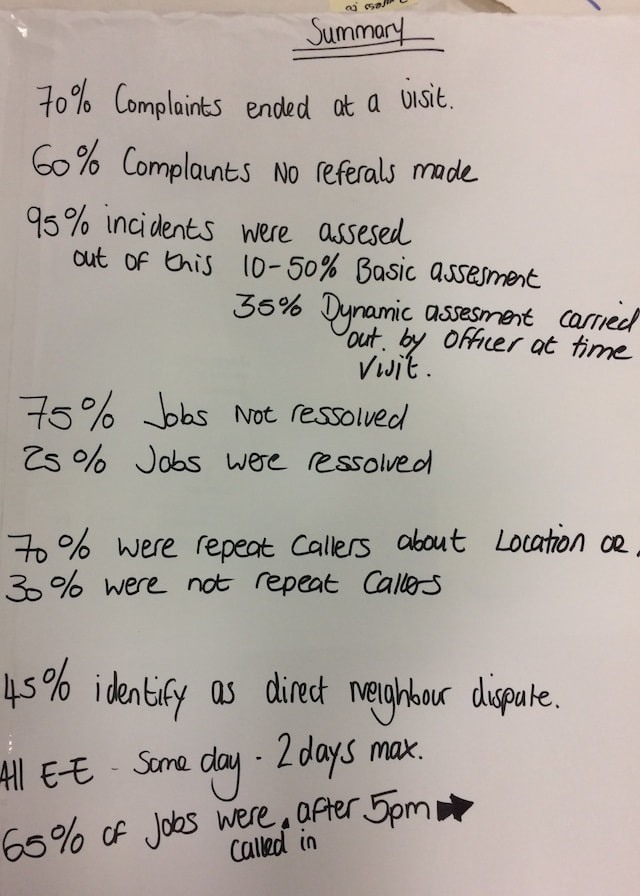 Summary
70% Complaints ended at a visit.
60% Complaunts No referals made
95% incidents were assesed
out of this 10-50% Basic assesment
35% Dynamic assesment carried
out. by officer at time
Visit.
75% Jobs Not ressolved
25% Jobs were ressolved
70% were repeat Callers about Location or
30% were not repeat Callers
45% identify as direct neighbour dispute.
All E-E - Same day - 2 days max.
65% of Jobs were after 5pm
called in